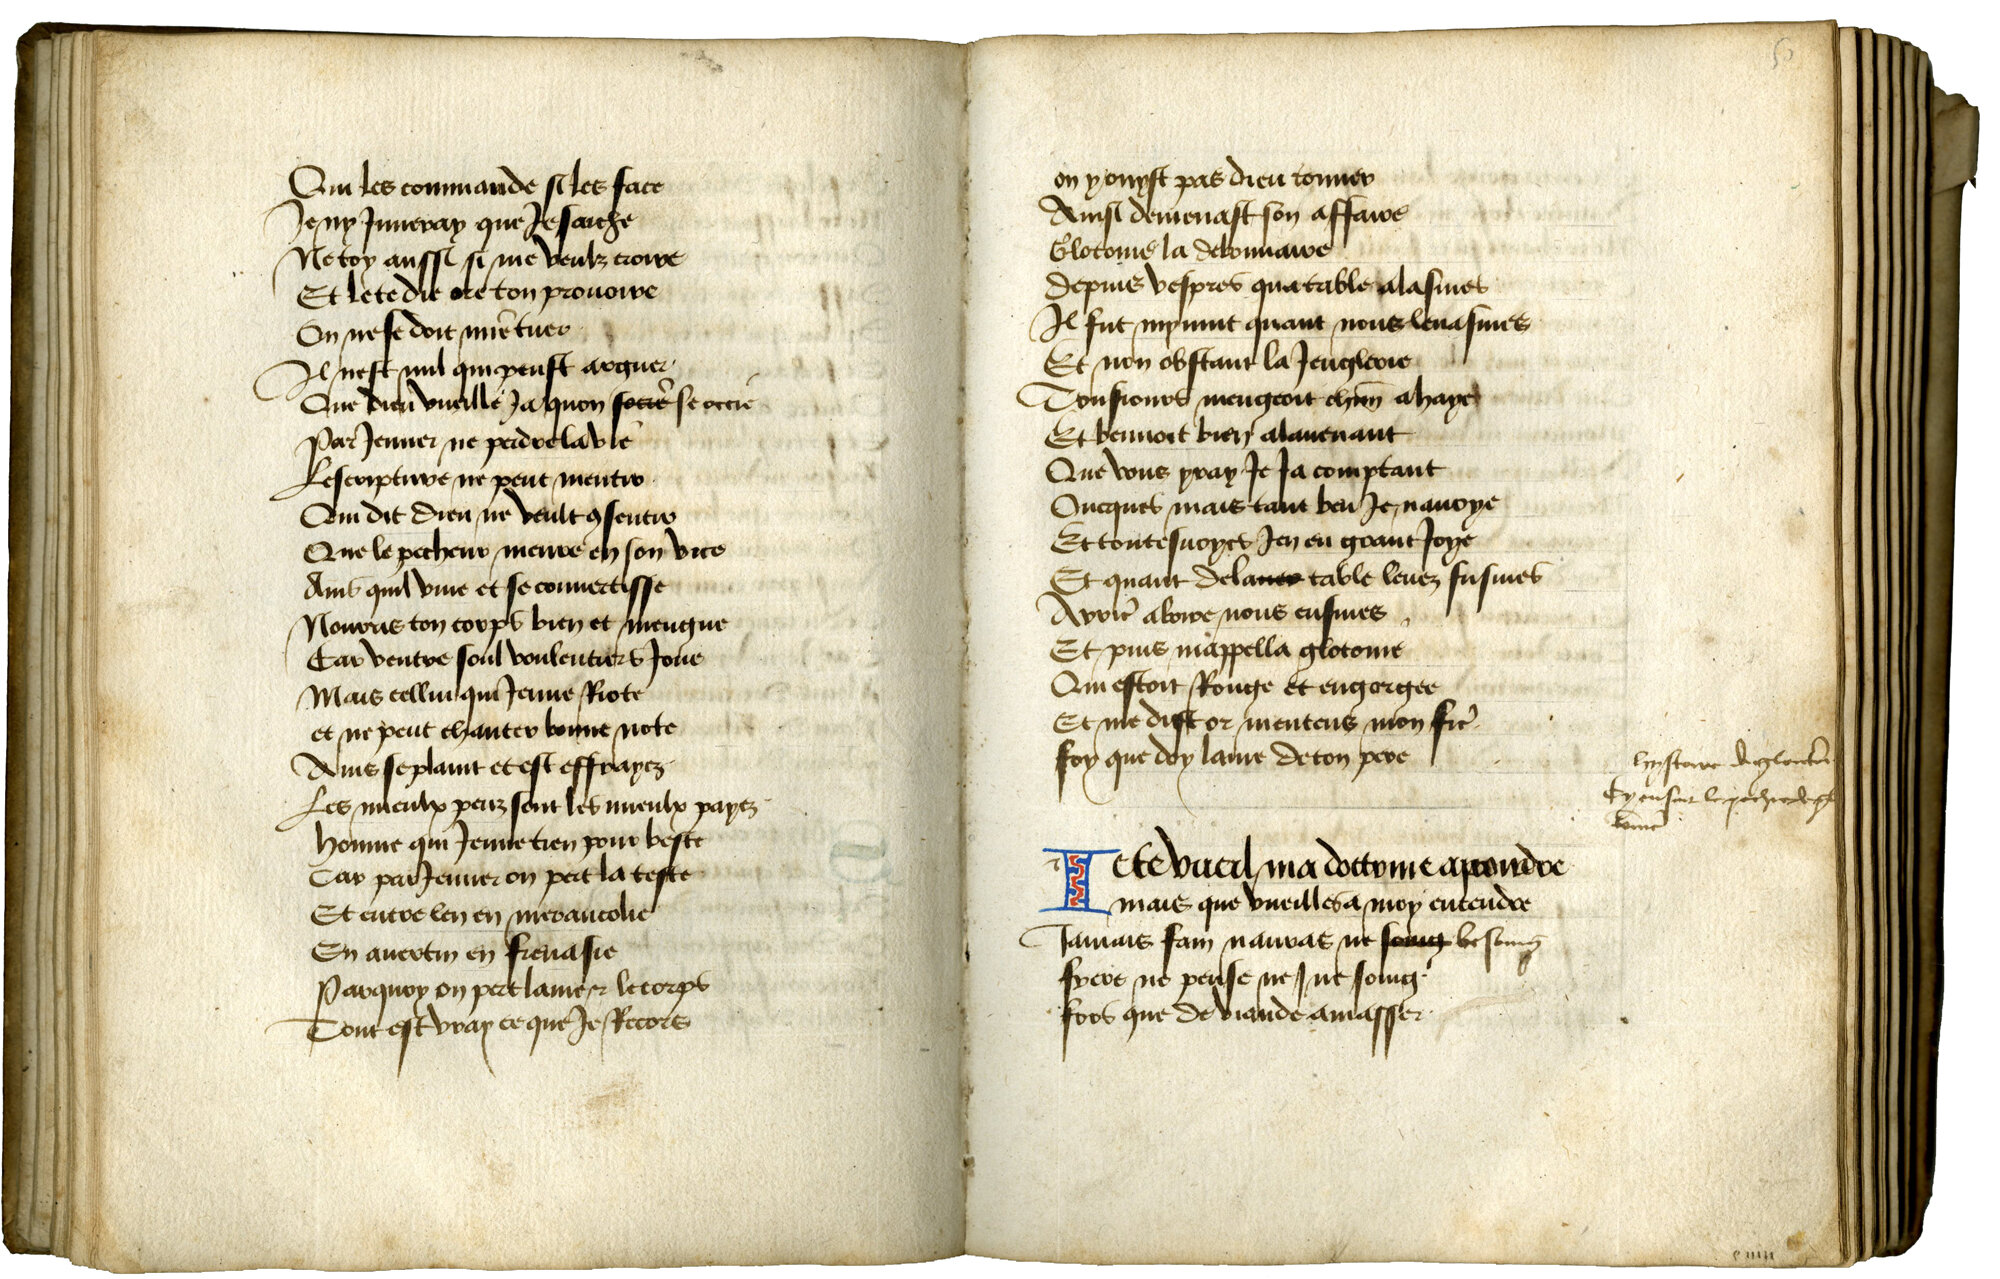 Qui les commande si les face
Je ny Juneray que Je sache
Ne toy aussi si me veulz croire
Et le te die ore ton prouoire
On ne se doit mie tuer
Il nest nul qui peust arguer
Que dieu vueille Ja quon se occie
Par Jeuner ne perdre la vie
Lescripture ne peut mentir
Qui dit dieu ne veult 9sentir
Que le pecheur meure en son vice
Ains quil viue et se conuertisse
Nourris ton corps bien et mengue
Car ventre soul voulentiers Joue
Mais cellui qui Jeune Riote
et ne peut chanter bonne note
Ains se plaint et est effrayez
Les mieulx peuz sont les mieulx payez
Homme qui Jeune tien pour beste
Car par Jeuner on pert la teste
Et entre len en merancolie
En auertin en frenasie
Parquoy on pert lame et le corps
Tout est vray ce que Je Recors
on y ouyst pas dieu tonner
Ainsi demenast son affaire
Glotonie la debonnaire
Depuis vespres qua table alasmes
Il fut mynuit quant nous leuasmes
Et non obstant la Jenglerie
Tousiours mengeoit chun a haye
Et beuuoit bien alauenant
Que vous yray Je Ja comptant
Oncques mais tant beu Je nauoye
Et toutesuoyes Jen eu grant Joye
Et quant de la table leuez fusmes
Apres aboire nous eusmes
Et puis mappella glotonie
Qui estoit Rouge et engorgee
Et me dist or mentens mon fre
foy que doy lame de ton pere
lystoire de glouto
Cy ensuit le peche de gl
tonie
Je te vueil ma doctrine aprendre
mais que vueilles a moy entendre
Jamais fain nauras ne besoing
frere ne pense ne Jne soing
fors que de viande amasser